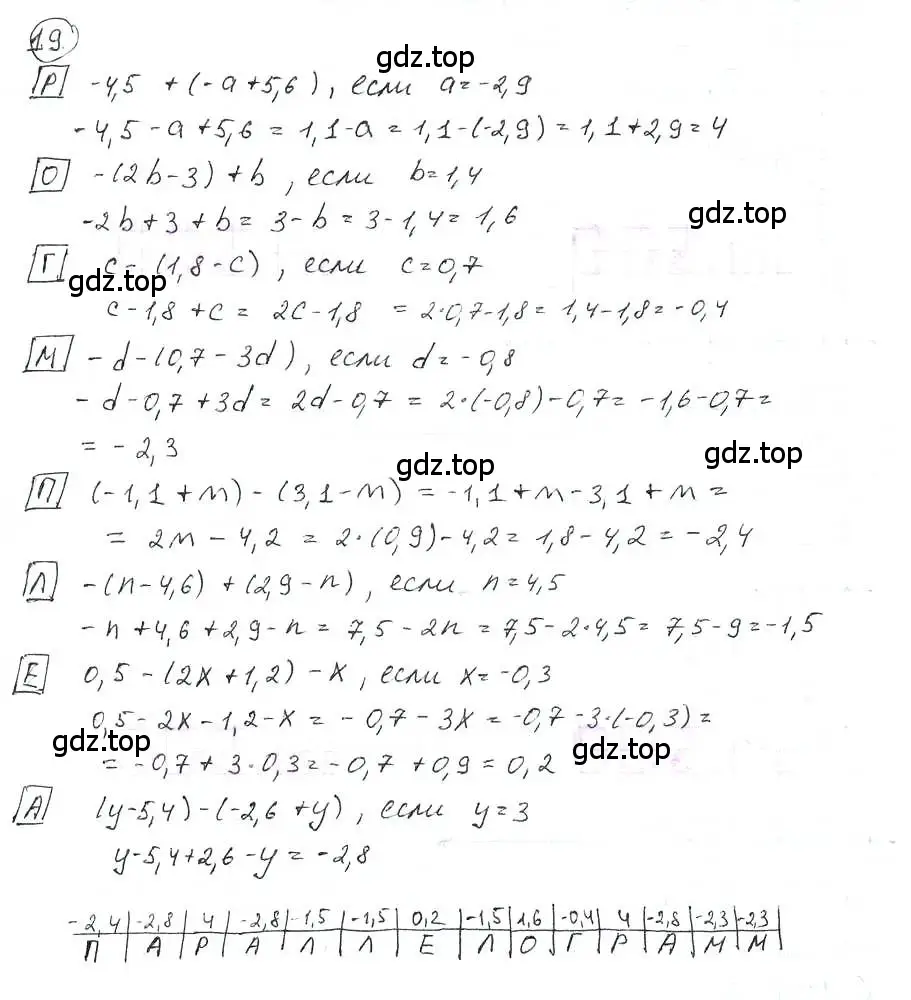 19.
gdz.top
Р -4,5 + (-a+5,6), если a=-2,9
-4,5-a+5,6 = 1,1-a = 1,1-(-2,9) = 1,1+2,9=4
О -(2b-3)+b, если b=1,4
gdz.top
-2b+3+b = 3-b = 3-1,4 = 1,6
Г c-(1,8-c), если c=0,7
gdz.top
c-1,8+c = 2c-1,8 = 2·0,7-1,8 = 1,4-1,8 = -0,4
М -d-(0,7-3d), если d=-0,8
-d-0,7+3d = 2d-0,7 = 2·(-0,8)-0,7 = -1,6-0,7 =
= -2,3
gdz.top
gdz.top
П (-1,1+m)-(3,1-m) = -1,1+m-3,1+m =
= 2m-4,2 = 2·(0,9)-4,2 = 1,8-4,2 = -2,4
Л -(n-4,6)+(2,9-n), если n=4,5
-n+4,6+2,9-n = 7,5-2n = 7,5-2·4,5 = 7,5-9 = -1,5
Е 0,5-(2x+1,2)-x, если x=-0,3
0,5-2x-1,2-x = -0,7-3x = -0,7-3·(-0,3) =
gdz.top
gdz.top
= -0,7+3·0,3 = -0,7+0,9 = 0,2
А (y-5,4)-(-2,6+y), если y=3
y-5,4+2,6-y = -2,8
-2,4 | -2,8 | 4 | -2,8 | -1,5 | -1,5 | 0,2 | -1,5 | 1,6 | -0,4 | 4 | -2,8 | -2,3 | -2,3
П | А | Р | А | Л | Л | Е | Л | О | Г | Р | А | М | М